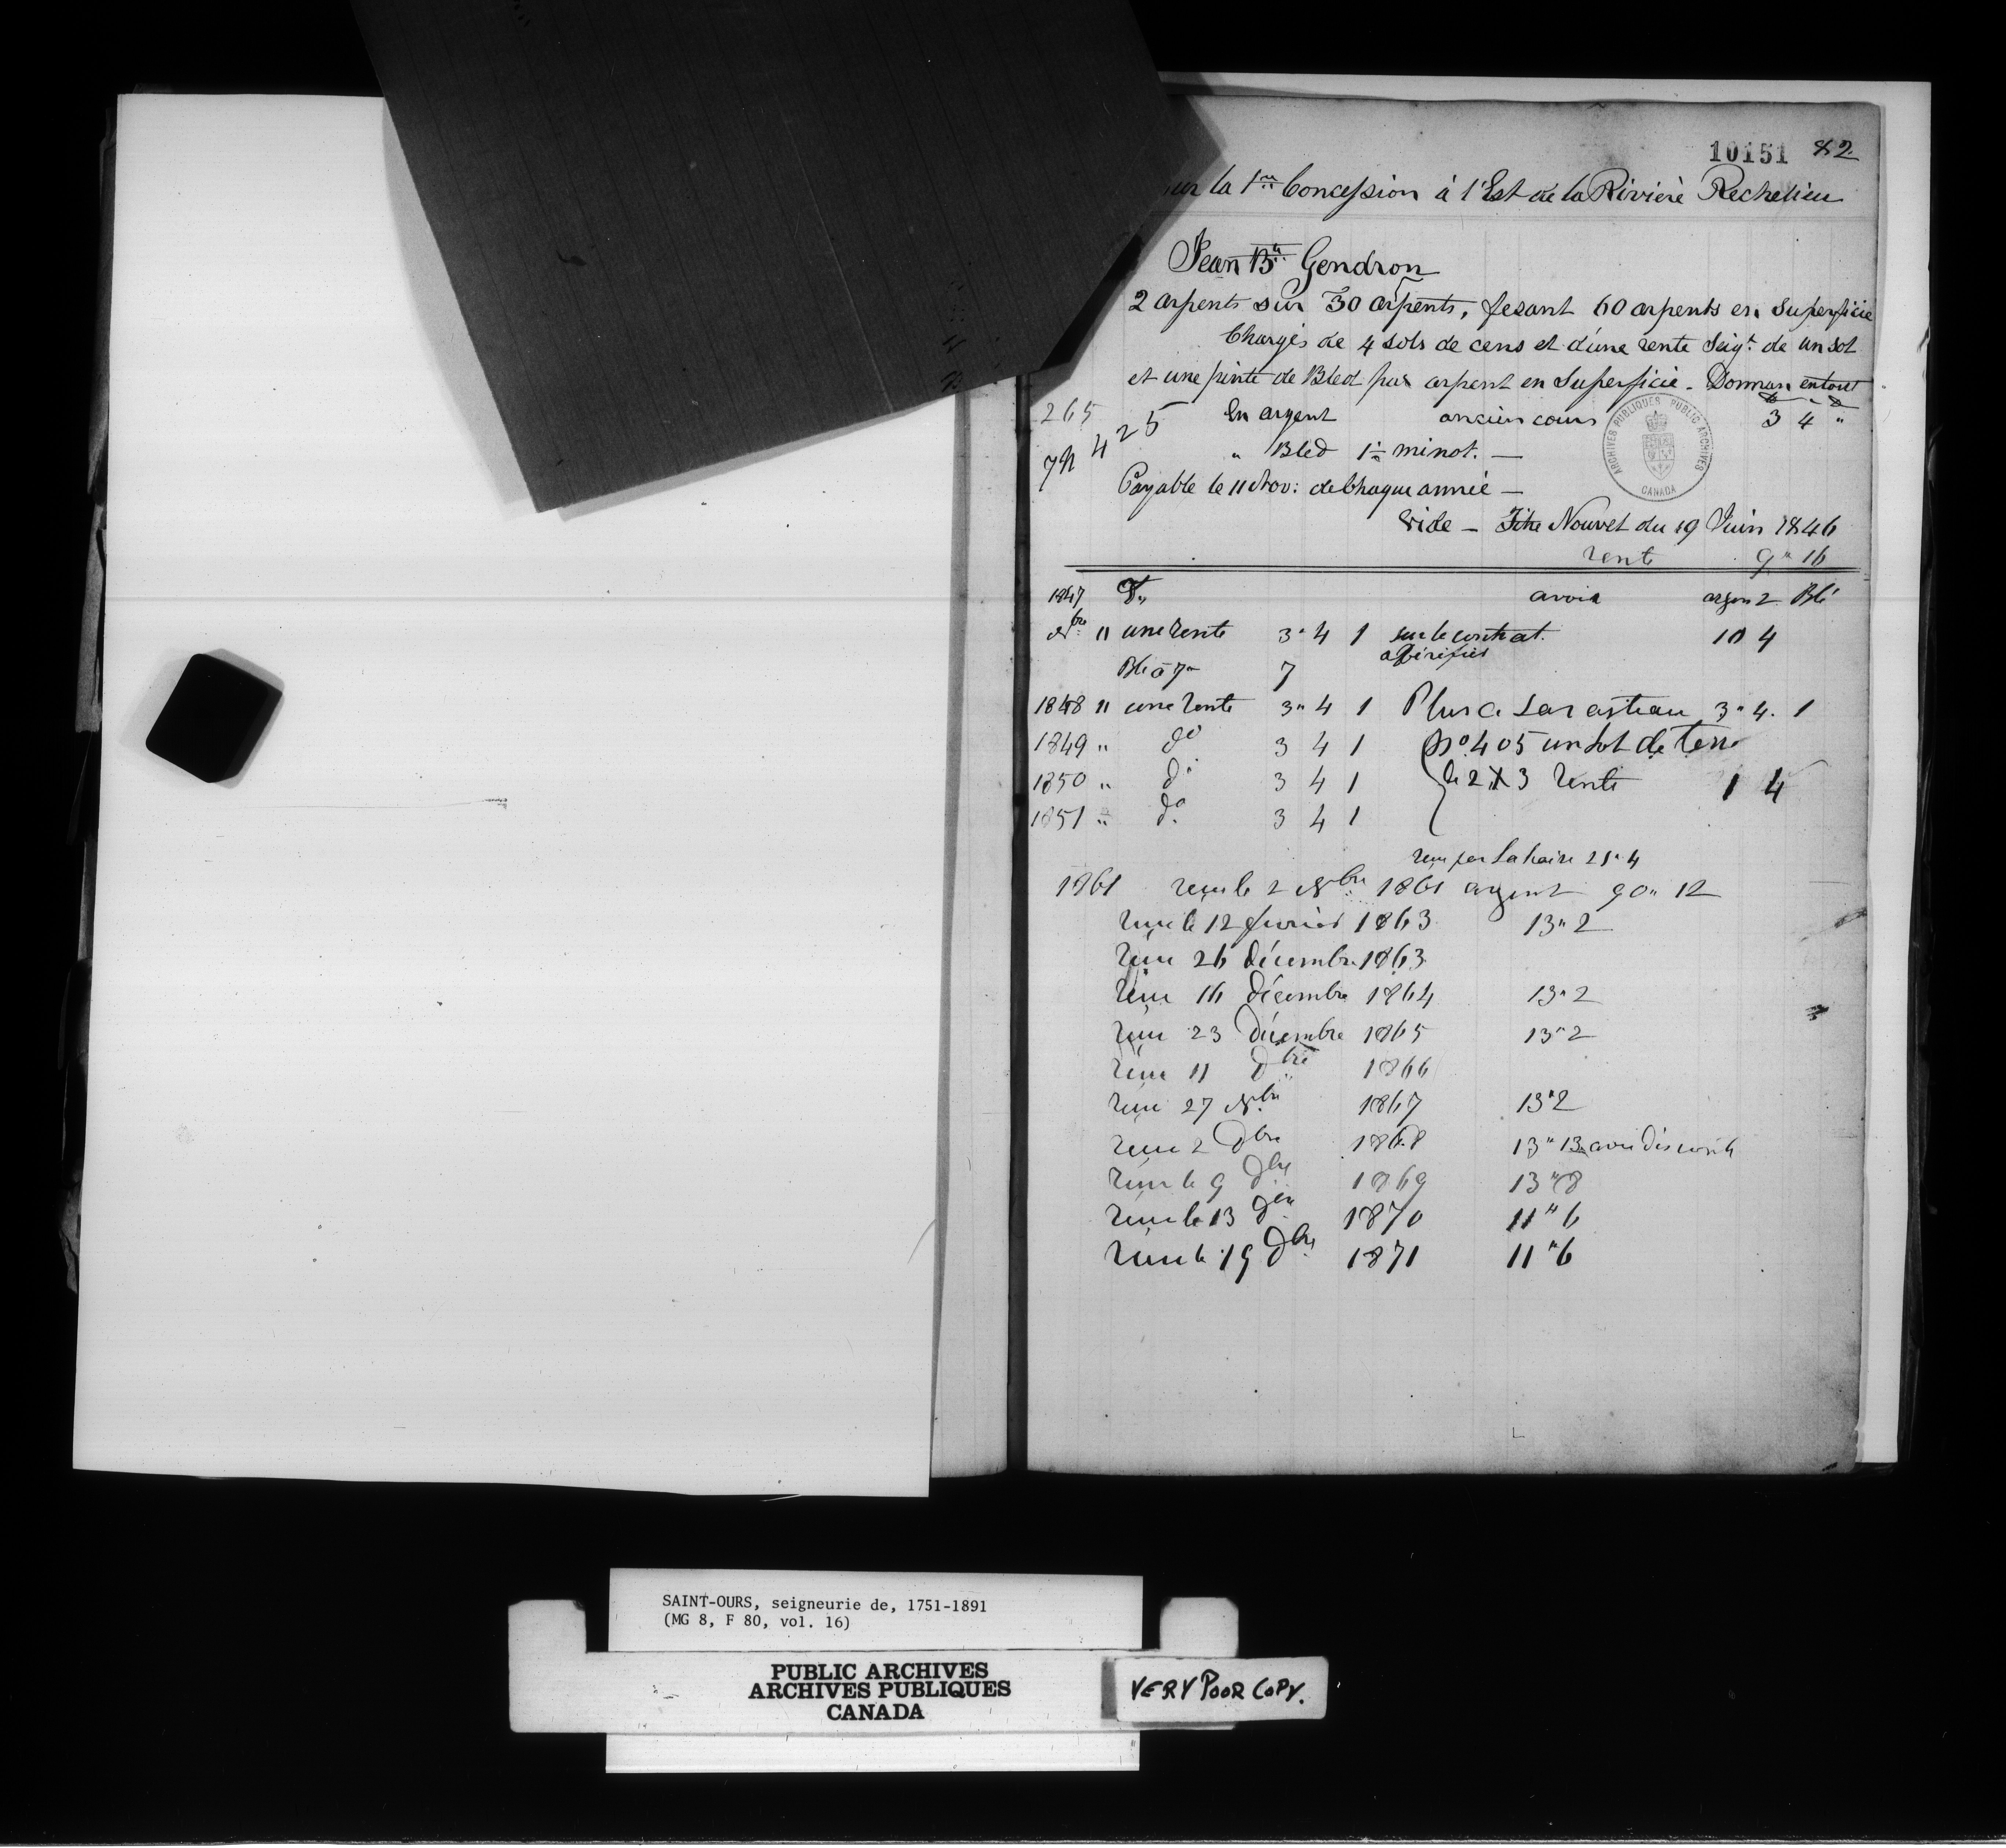 10151 82
sur la 1re Concession à l'Est de la Rivière Rechelieu
Jean Bte Gendron
2 arpents sur 30 arpents, fesant 60 arpents en Superficie
Chargés de 4 sols de cens et d'une rente Seigr. de un sol
et une pinte de Bled par arpent en Superficie - Donnan en tout
265 425 En argent ancien cours 3 4 "
" Bled 1 minot. —
ARCHIVES PUBLIQUES PUBLIC ARCHIVES CANADA
Payable le 11 Nov: de Chaque année —
Vide — Titre Nouvel du 19 Juin 1846
rente 9" 16
1847 Dr avoir argent Blé
Nbre " une rente 3" 4 1 sur le contrat. 10 4
Blé à 7" 7
1848 " une rente 3" 4 1 Plus a 3" 4. 1
1849 " do 3 4 1 No. 405 un lot de terre
1850 " do 3 4 1 de 2 X 3 rente 1 4
1851 " do 3 4 1
reçu par Lahaire 25" 4
1861 reçu le 2 Nbre 1861 argent 90" 12
reçu le 12 fevrier 1863 13" 2
reçu 26 décembre 1863
reçu 16 décembre 1864 13" 2
reçu 23 Décembre 1865 13" 2
reçu 11 Dbre 1866
reçu 27 Nbre 1867 13" 2
reçu 2 Dbre 1868 13" 13
reçu le 9 Dbre 1869 13" 8
reçu le 13 Dbre 1870 11" 6
reçu le 19 Dbre 1871 11" 6
SAINT-OURS, seigneurie de, 1751-1891
(MG 8, F 80, vol. 16)
PUBLIC ARCHIVES
ARCHIVES PUBLIQUES
CANADA
VERY POOR COPY.